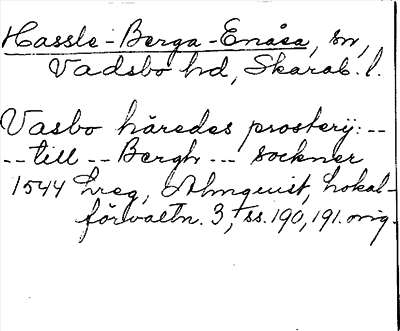 Hassle-Berga-Enåsa, sn,
Vadsbo hd, Skarab. l.
Vasbo häredes prosterij:--
-- till -- Bergh --- sockner
1544 Lreg, Almquist, Lokal-
förvaltn. 3, ss. 190, 191. orig.